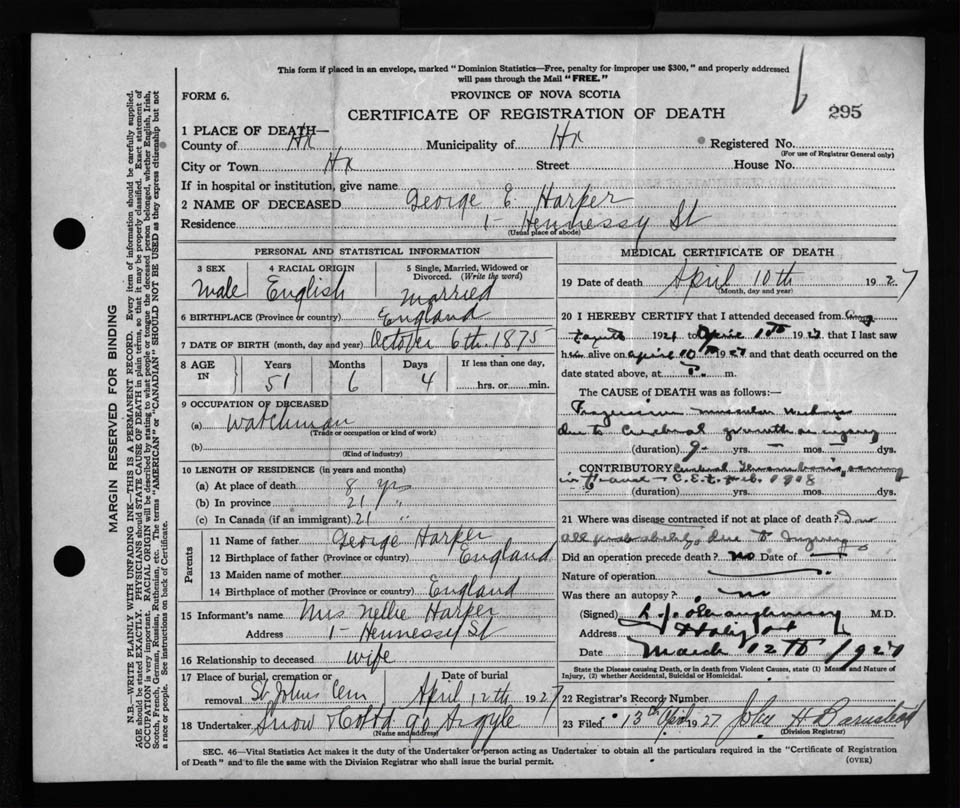 This form if placed in an envelope, marked "Dominion Statistics—Free, penalty for improper use $300," and properly addressed
will pass through the Mail "FREE."
FORM 6.
PROVINCE OF NOVA SCOTIA
CERTIFICATE OF REGISTRATION OF DEATH
295
1 PLACE OF DEATH—
County of Hx Municipality of Hx Registered No.
(For use of Registrar General only)
City or Town Hx Street House No.
If in hospital or institution, give name
2 NAME OF DECEASED George E. Harper
Residence 1- Hennessy St
(Usual place of abode)
PERSONAL AND STATISTICAL INFORMATION
3 SEX Male
4 RACIAL ORIGIN English
5 Single, Married, Widowed or Divorced. (Write the word) Married
6 BIRTHPLACE (Province or country) England
7 DATE OF BIRTH (month, day and year) October 6th 1875
8 AGE IN Years 51 Months 6 Days 4 If less than one day, hrs. or min.
9 OCCUPATION OF DECEASED
(a) Watchman
(Trade or occupation or kind of work)
(b)
(Kind of industry)
10 LENGTH OF RESIDENCE (in years and months)
(a) At place of death 8 yrs
(b) In province 21 "
(c) In Canada (if an immigrant) 21 "
Parents
11 Name of father George Harper
12 Birthplace of father (Province or country) England
13 Maiden name of mother
14 Birthplace of mother (Province or country) England
15 Informant's name Mrs Nellie Harper
Address 1- Hennessy St
16 Relationship to deceased wife
17 Place of burial, cremation or removal St Johns Cem Date of burial April 12th 1927
18 Undertaker Snow & Co Ltd 90 Argyle
(Name and address)
MEDICAL CERTIFICATE OF DEATH
19 Date of death April 10th 1927
(Month, day and year)
20 I HEREBY CERTIFY that I attended deceased from
1921 to April 10th 1927 that I last saw
him alive on April 10th 1927 and that death occurred on the
date stated above, at P. m.
The CAUSE of DEATH was as follows:—
Progressive muscular
due to Cerebral growth or injury
(duration) 9 yrs. — mos. — dys.
CONTRIBUTORY Cerebral
in France — C.E.F. Feb. 1918
(duration) yrs. mos. dys.
21 Where was disease contracted if not at place of death? In
all probability due to
Did an operation precede death? No Date of —
Nature of operation
Was there an autopsy? no
(Signed) M.D.
Address Halifax
Date March 12th 1927
State the Disease causing Death, or in death from Violent Causes, state (1) Means and Nature of
Injury, (2) whether Accidental, Suicidal or Homicidal.
22 Registrar's Record Number
23 Filed 13th April 1927 John H Barnstead
(Division Registrar)
SEC. 46—Vital Statistics Act makes it the duty of the Undertaker or person acting as Undertaker to obtain all the particulars required in the "Certificate of Registration
of Death" and to file the same with the Division Registrar who shall issue the burial permit.
(OVER)
MARGIN RESERVED FOR BINDING
N.B.—WRITE PLAINLY WITH UNFADING INK—THIS IS A PERMANENT RECORD. Every item of information should be carefully supplied.
AGE should be stated EXACTLY. PHYSICIANS should STATE CAUSE OF DEATH in plain terms, so that it may be properly classified. Exact statement of
OCCUPATION is very important. RACIAL ORIGIN will be described by stating to what people or tongue the deceased person belonged, whether English, Irish,
Scotch, French, German, Russian, Ruthenian, etc. The terms "AMERICAN" or "CANADIAN" SHOULD NOT BE USED as they express citizenship but not
a race or people. See instructions on back of Certificate.